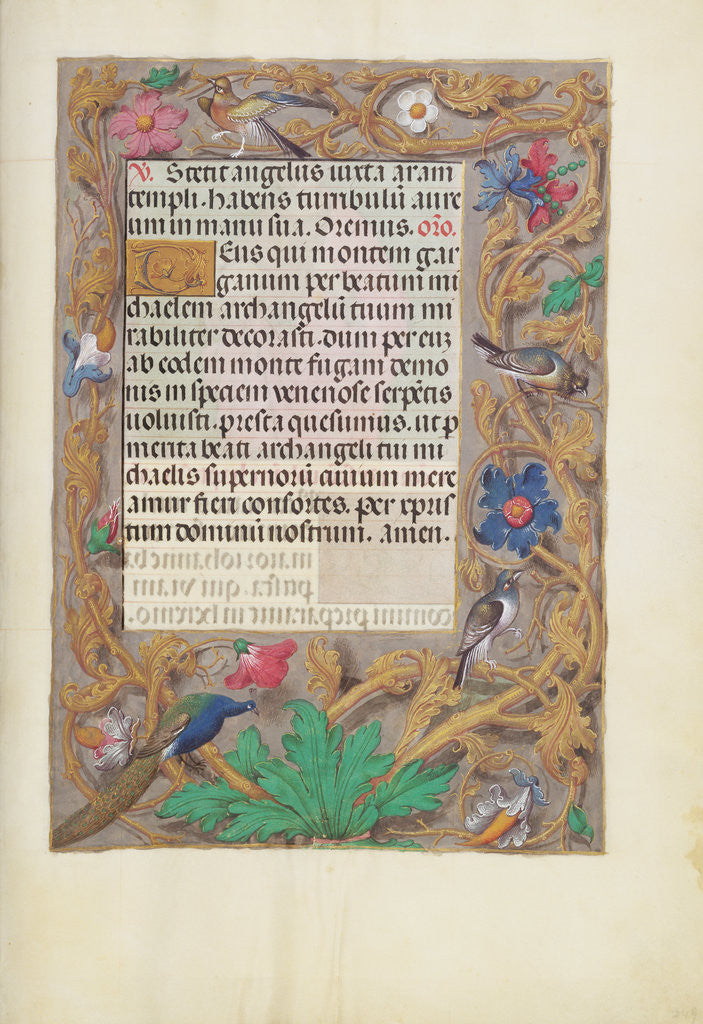 V. Stetit angelus iuxta aram
templi. habens turribulū aure
um in manu sua. Oremus. orō.
Deus qui montem gar
ganum per beatum mi
chaelem archangelū tuum mi
rabiliter decorasti. dum per eūꝫ
ab eodem monte fugam demo
nis in speciem venenose serpētis
uoluisti. presta quesumus. ut ꝑ
merita beati archangeli tui mi
chaelis supernorū ciuium mere
amur fieri consortes. per xpris
tum dominū nostrum. amen.